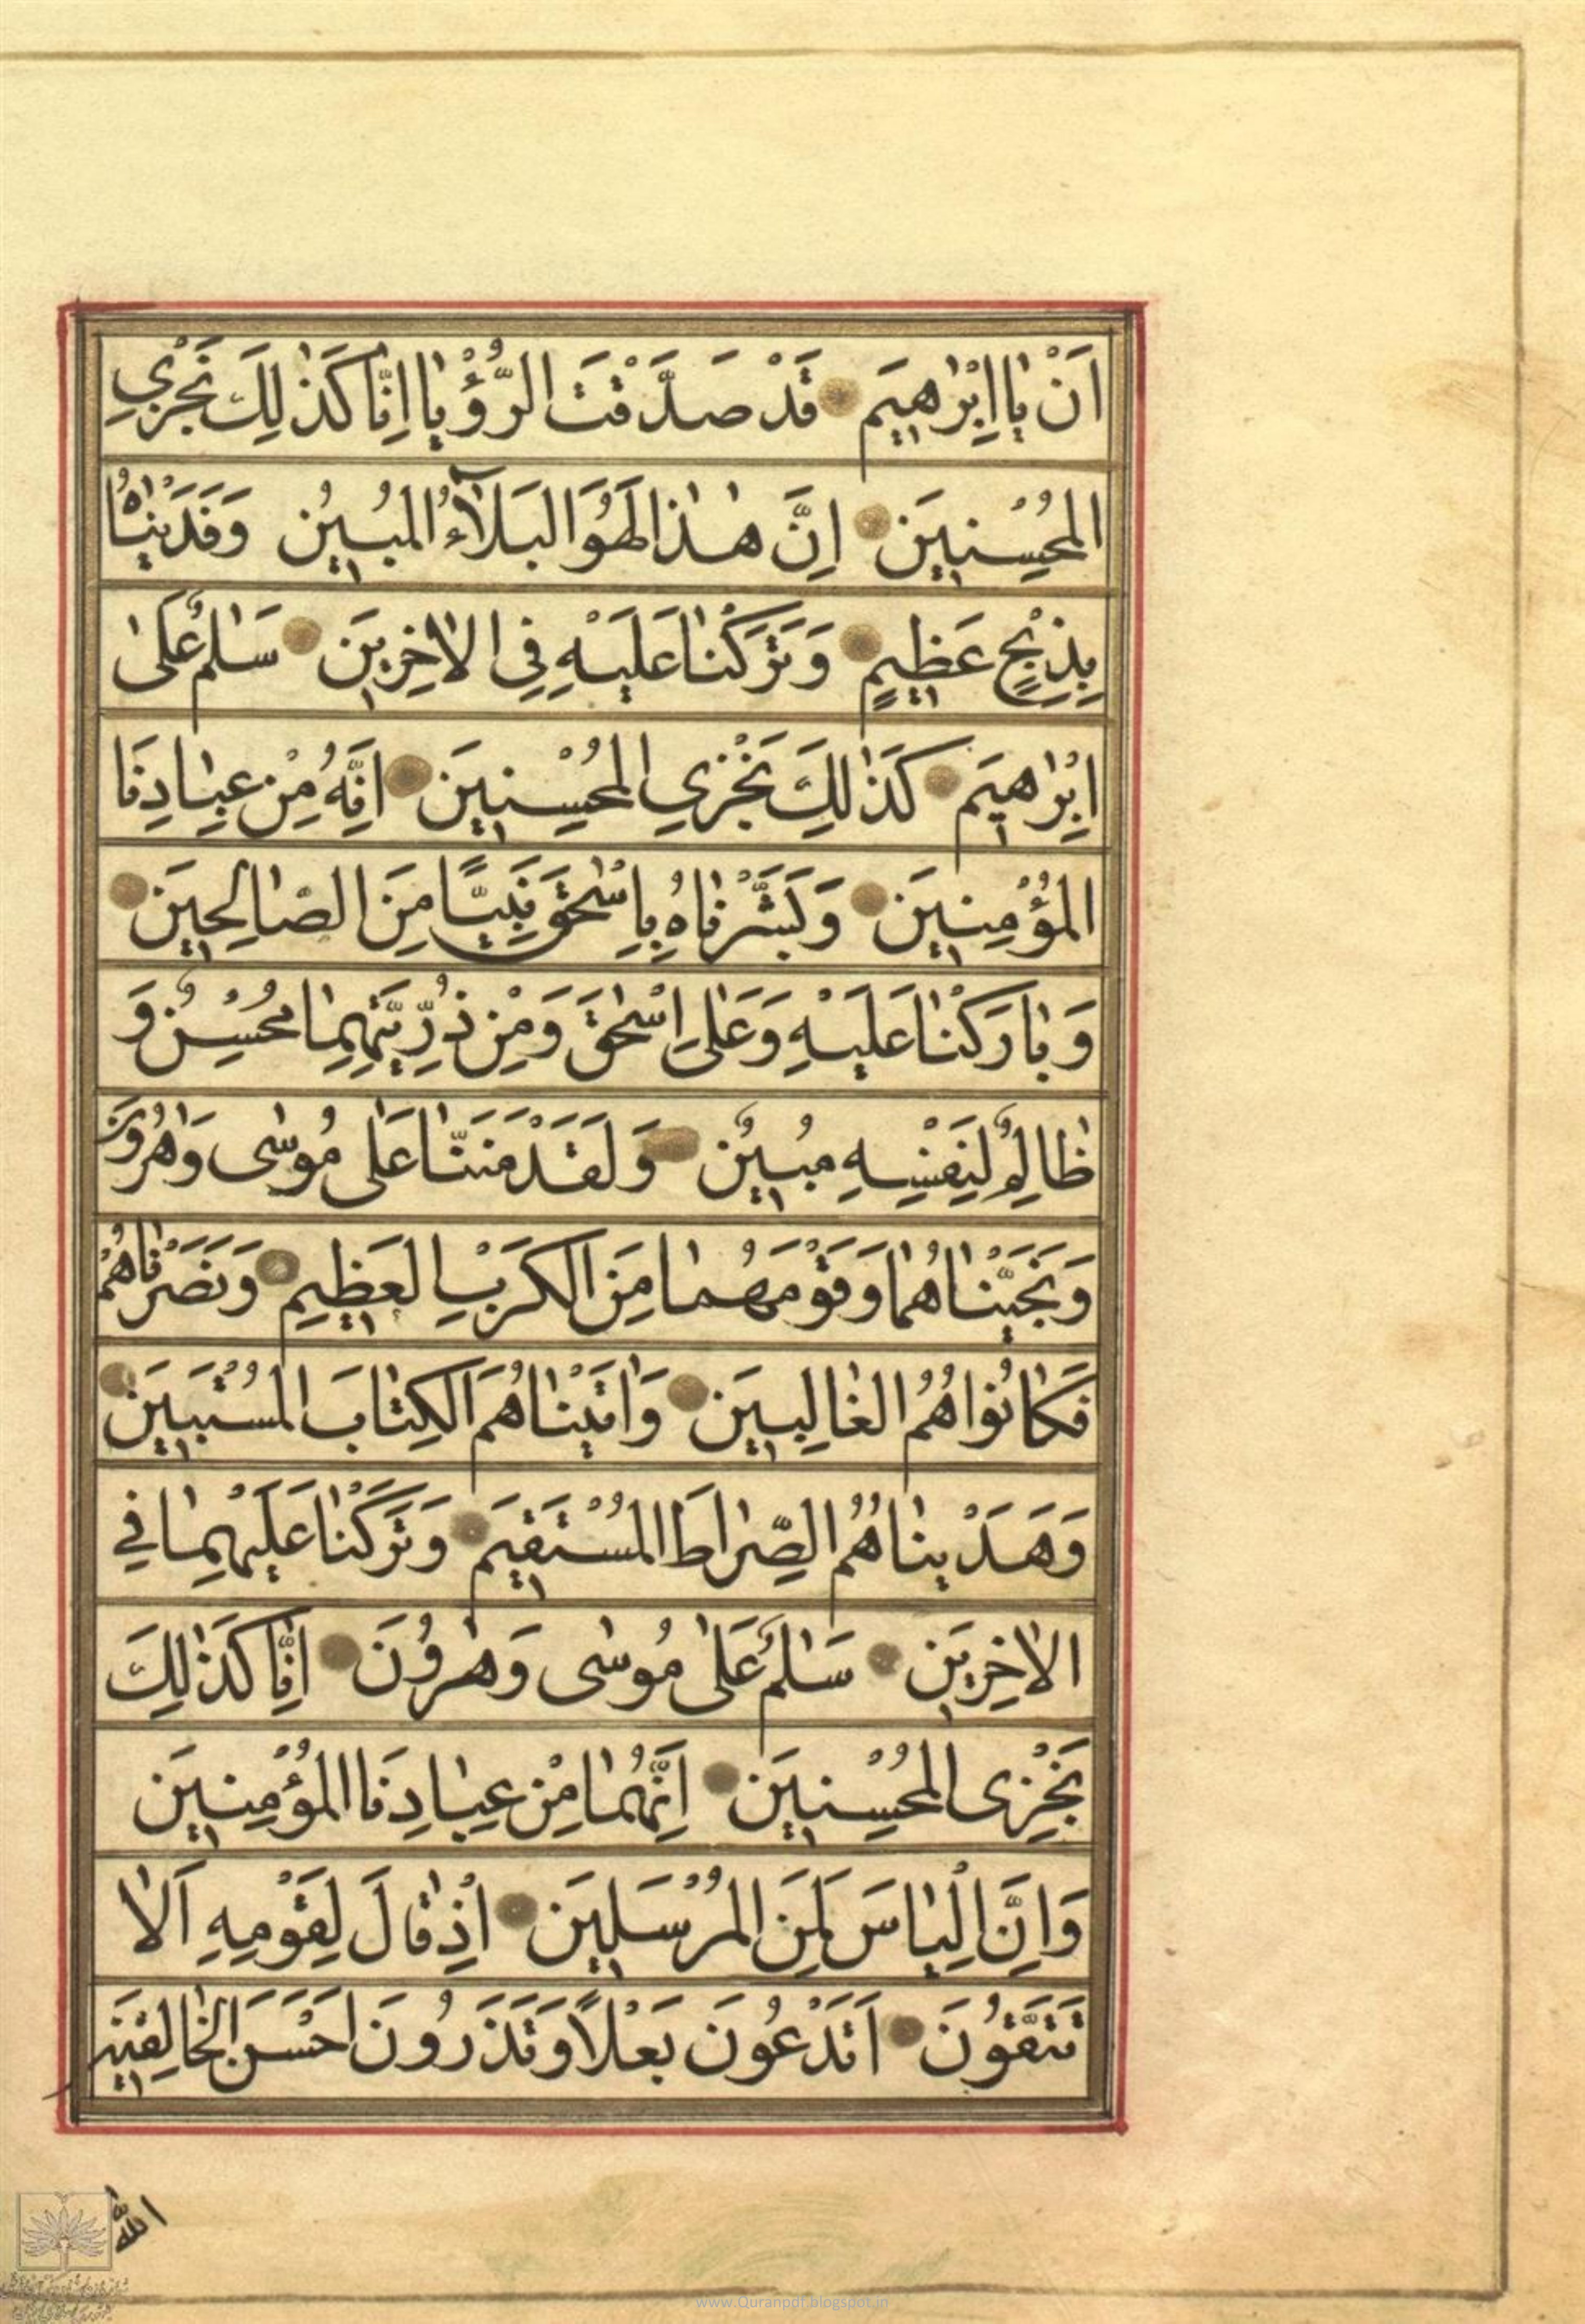 اَنْ يٰا اِبْرٰاهيمَ قَدْ صَدَّقْتَ الرُّؤْيٰا اِنّٰا كَذٰلِكَ نَجْزِي
المُحْسِنينَ اِنَّ هٰذا لَهُوَ البَلٰٓاءُ المُبينُ وَفَدَيْنٰاهُ
بِذِبْحٍ عَظيمٍ وَتَرَكْنٰا عَلَيْهِ فِي الاٰخِرينَ سَلٰمٌ عَلىٰ
اِبْرٰاهيمَ كَذٰلِكَ نَجْزِي المُحْسِنينَ اِنَّهُ مِنْ عِبٰادِنَا
المُؤْمِنينَ وَبَشَّرْنٰاهُ بِاِسْحٰقَ نَبِيًّا مِنَ الصّٰالِحينَ
وَبٰارَكْنٰا عَلَيْهِ وَعَلىٰ اِسْحٰقَ وَمِنْ ذُرِّيَّتِهِمٰا مُحْسِنٌ وَ
ظٰالِمٌ لِنَفْسِهِ مُبينٌ وَلَقَدْ مَنَنّٰا عَلىٰ مُوسٰى وَهٰرُونَ
وَنَجَّيْنٰاهُمٰا وَقَوْمَهُمٰا مِنَ الكَرْبِ العَظيمِ وَنَصَرْنٰاهُمْ
فَكٰانُوا هُمُ الغٰالِبينَ وَاٰتَيْنٰاهُمَا الكِتٰابَ المُسْتَبينَ
وَهَدَيْنٰاهُمَا الصِّرٰاطَ المُسْتَقيمَ وَتَرَكْنٰا عَلَيْهِمٰا فِي
الاٰخِرينَ سَلٰمٌ عَلىٰ مُوسٰى وَهٰرُونَ اِنّٰا كَذٰلِكَ
نَجْزِى المُحْسِنينَ اِنَّهُمٰا مِنْ عِبٰادِنَا المُؤْمِنينَ
وَاِنَّ اِلْيٰاسَ لَمِنَ المُرْسَلينَ اِذْ قٰالَ لِقَوْمِهِ اَلاٰ
تَتَّقُونَ اَتَدْعُونَ بَعْلًا وَتَذَرُونَ اَحْسَنَ الخٰالِقينَ
اللّٰهَ
www.Quranpdf.blogspot.in